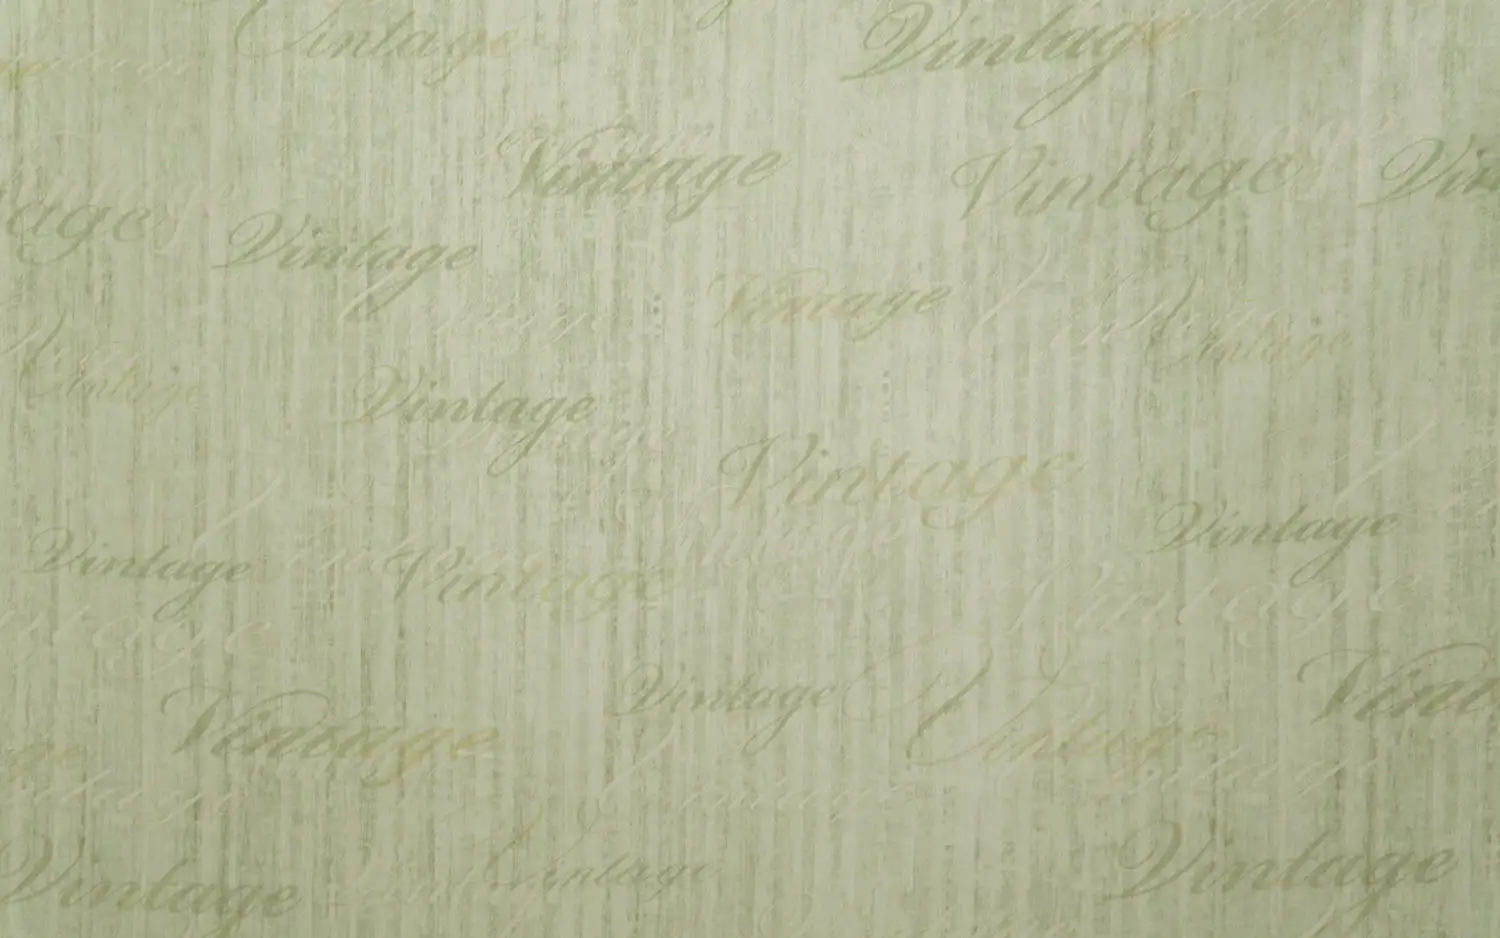 Vintage Vintage
Vintage Vintage Vin
age Vintage
Vintage Vintage
Vintage Vintage
Vintage
Vintage Vintage
Vintage Vintage
Vintage Vint
Vintage Vintage
Vintage Vintage Vintage